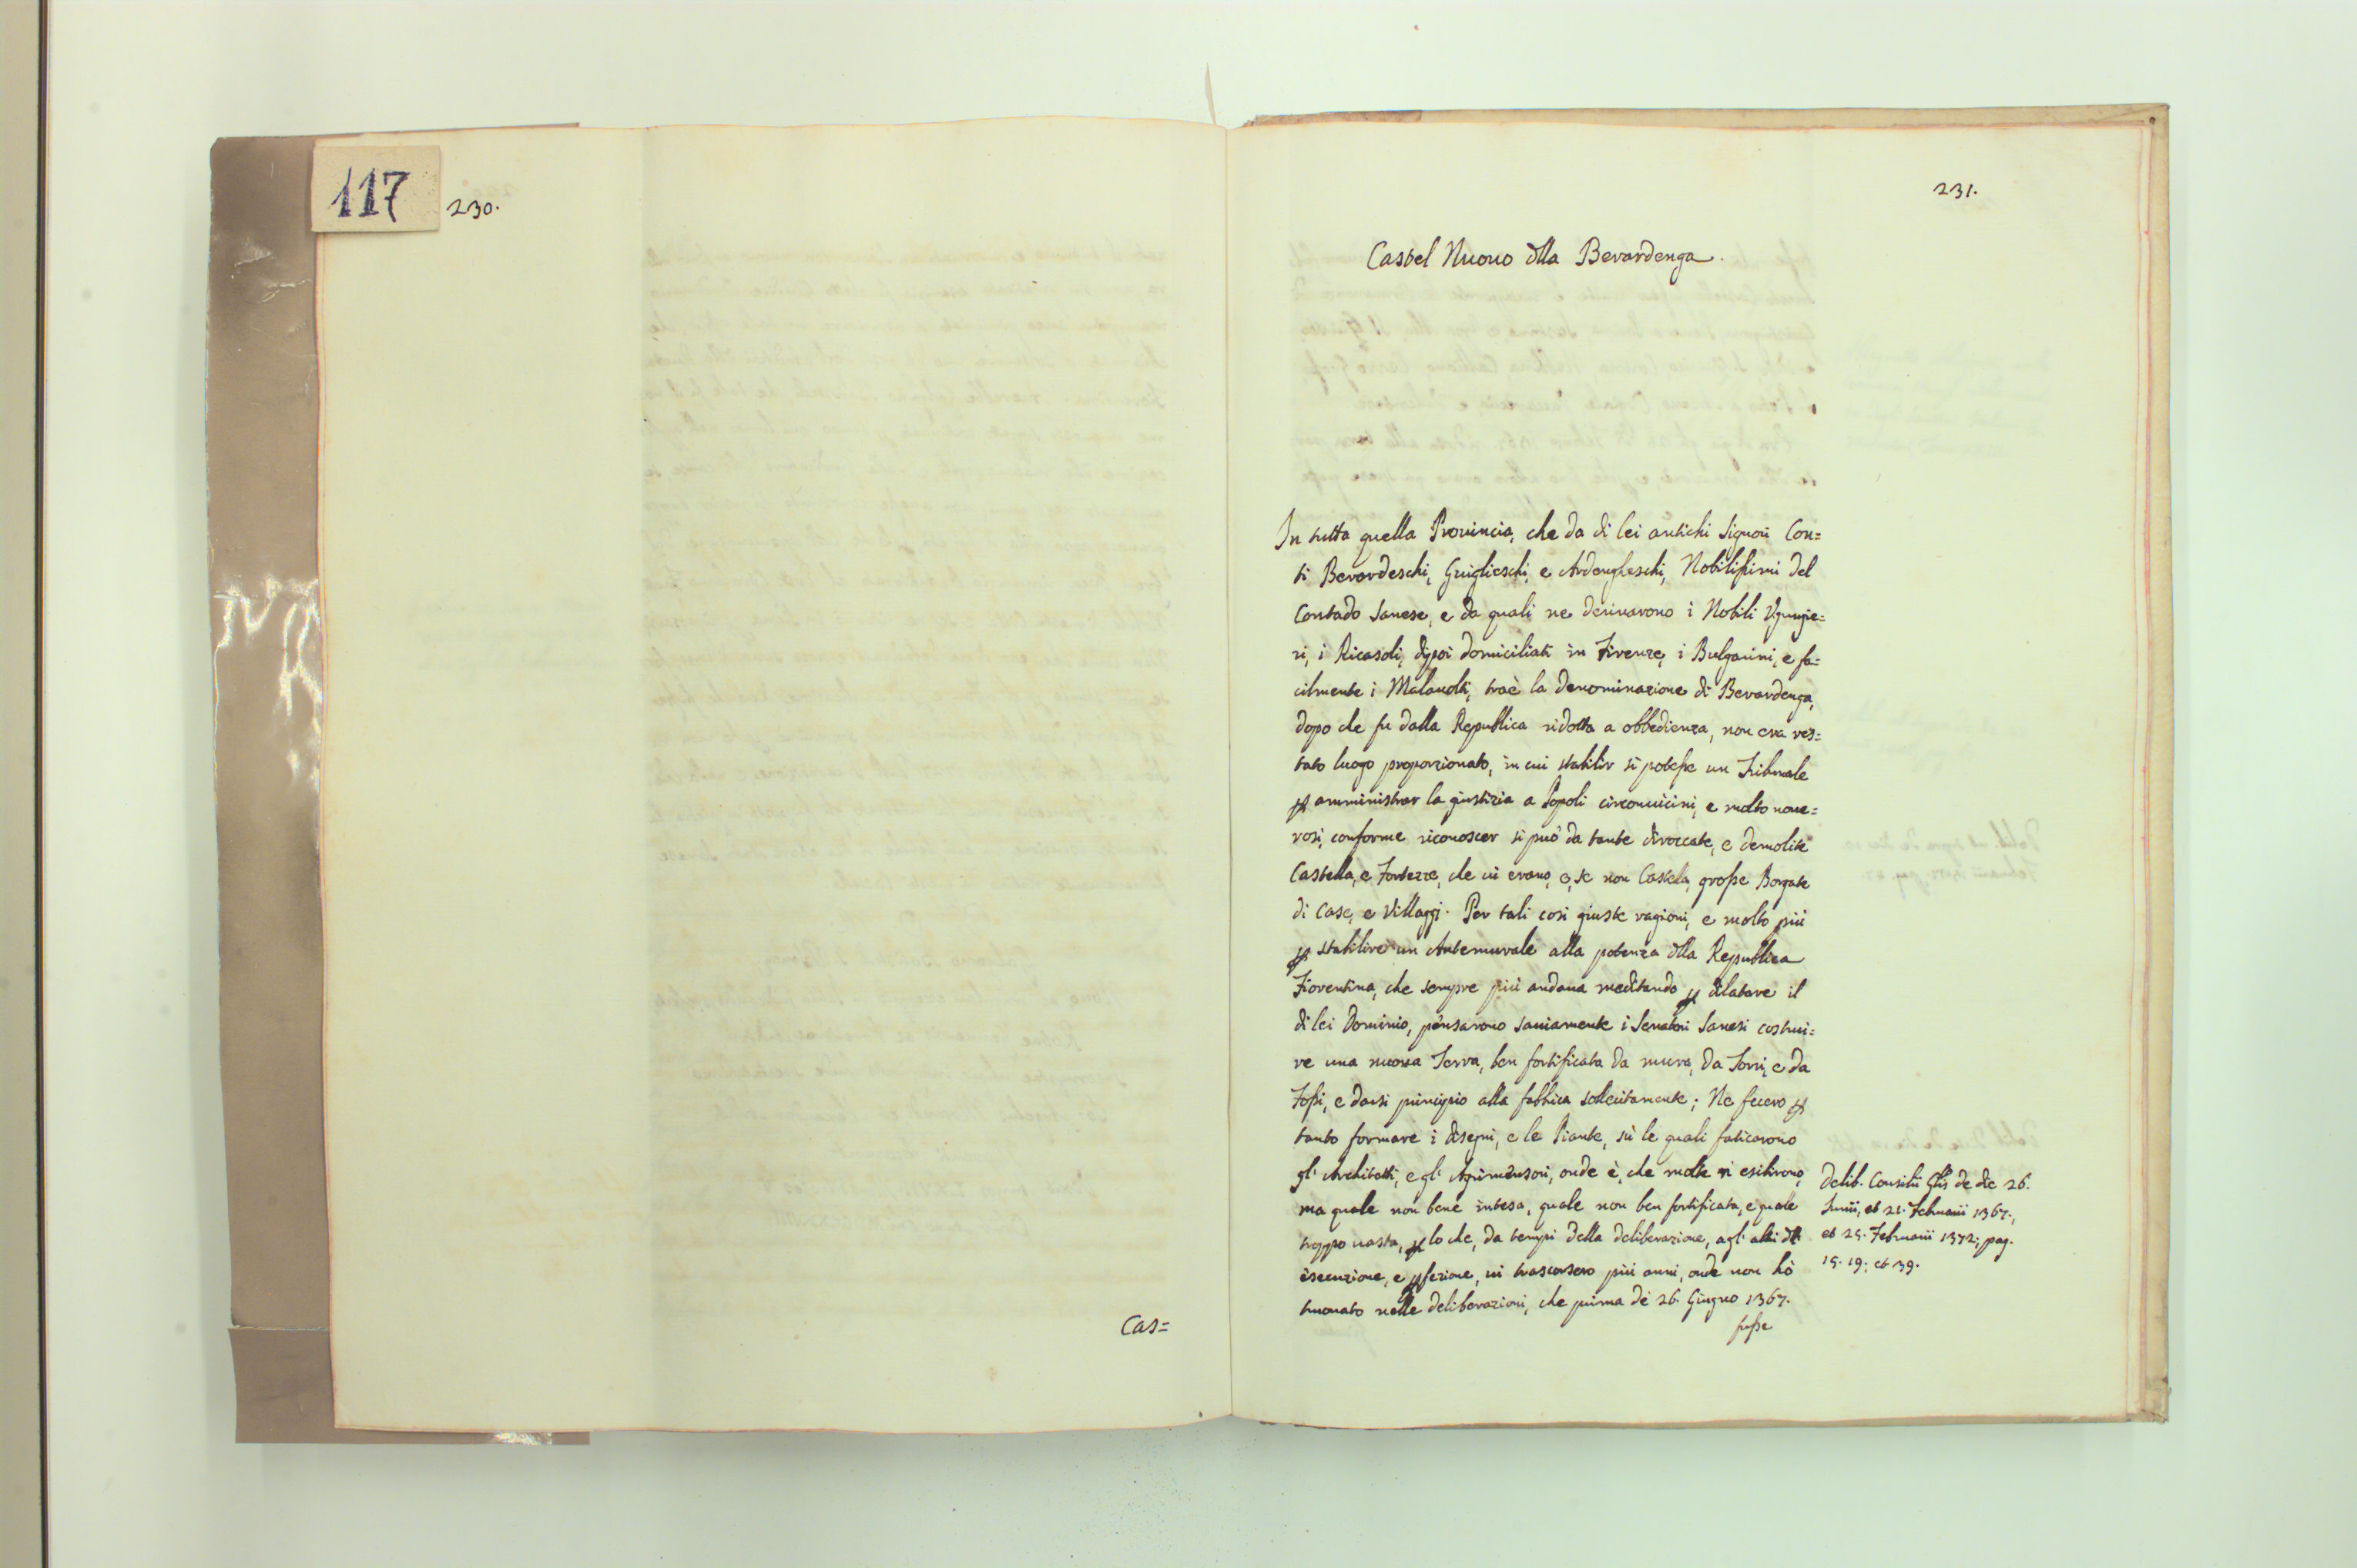 117
230.
Cas=
231.
Castel Nuovo dlla Berardenga.
In tutta quella Provincia, che da di lei antichi Signori Con=
ti Berardeschi, Guiglieschi, e Ardengheschi, Nobilissimi del
Contado Sanese, e da quali ne derivarono i Nobili Vgurgie=
ri, i Ricasoli, dippoi domiciliati in Firenze, i Bulgarini, e fa=
cilmente i Malavolti, traè la denominazione di Berardenga,
dopo che fu dalla Republica ridotta a obbedienza, non era res=
tato luogo proporzionato, in cui stabilir si potesse un Tribunale
p amministrar la giustizia a Popoli circonvicini, e molto nume=
rosi, conforme riconoscer si può da tante diroccate, e demolite
Castella, e Fortezze, che vi erano, o, se non Castella, grosse Borgate
di Case, e Villaggi. Per tali così giuste ragioni, e molto più
p stabilire un Antemurale alla potenza dlla Republica
Fiorentina, che sempre più andava meditando p dilatare il
di lei Dominio, pensarono saviamente i Senatori Sanesi costrui=
re una nuova Terra, ben fortificata da mura, da Torri, e da
Fossi, e darsi principio alla fabbrica sollecitamente; Ne fecero p
tanto formare i disegni, e le Piante, sù le quali faticarono
gl' Architetti, e gl' Agrimensori, onde è, che molte si esibirono,
ma quale non bene intesa, quale non ben fortificata, e quale
troppo vasta, p lo che, da tempi della deliberazione, a gl' altri dll'
esecuzione, e pfezione, vi trascorsero più anni, onde non hò
trovato nelle deliberazioni, che prima de 26. Giugno 1367.
fusse
Delib. Consilii Glis de die 26.
Iunii, et 21. Februarii 1367.,
et 25. Februarii 1372; pag.
15. 19; et 39.